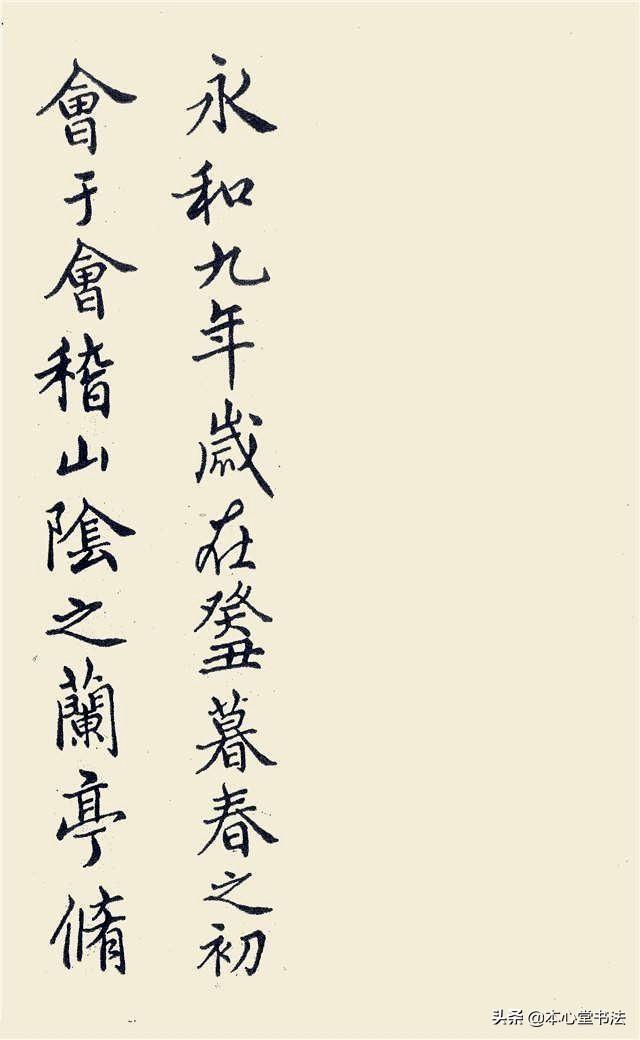 永和九年歲在癸丑暮春之初
會于會稽山隂之蘭亭脩
头条 @本心堂书法